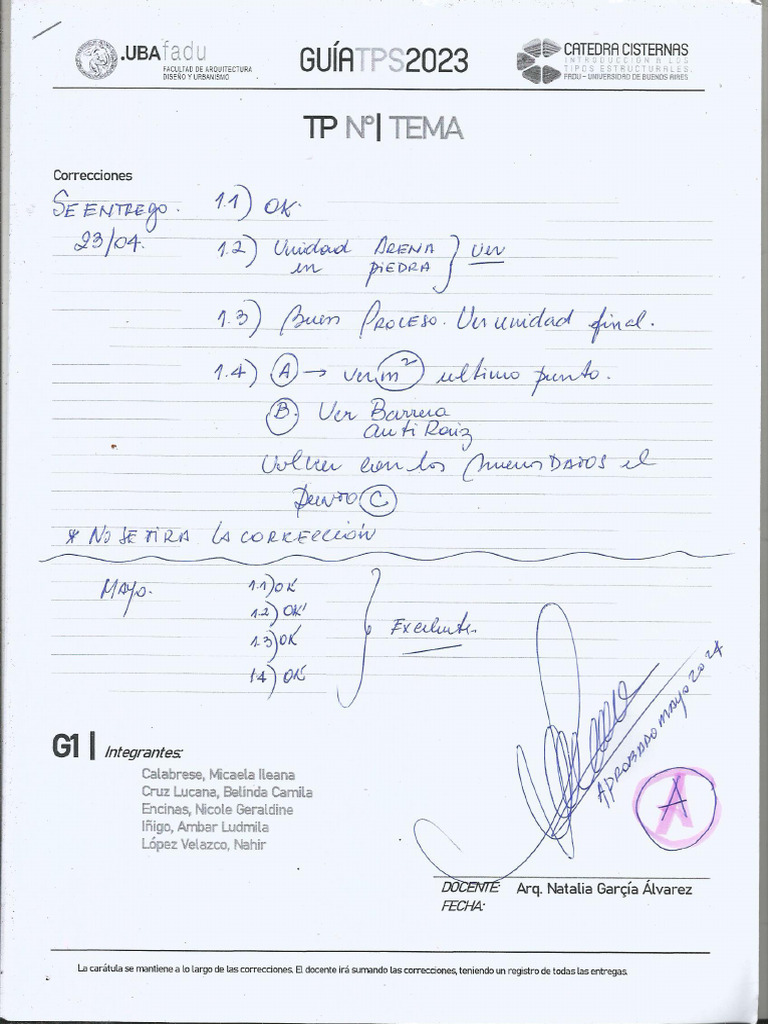 .UBAfadu
FACULTAD DE ARQUITECTURA
DISEÑO Y URBANISMO
GUÍATPS2023
CATEDRA CISTERNAS
INTRODUCCION A LOS
TIPOS ESTRUCTURALES.
FADU - UNIVERSIDAD DE BUENOS AIRES
TP Nº| TEMA
Correcciones
SE ENTREGO.
23/04.
1.1) OK.
1.2) Unidad ARENA } Ver
en PIEDRA
1.3) Buen PROCESO. Ver unidad final.
1.4) A → ver m² ultimo punto.
B. Ver Barrera
anti Raiz
Volver con los nuevos DATOS el
punto C
* NO SE TIRA LA CORRECCIÓN
MAYO.
1.1) OK
1.2) OK
1.3) OK
1.4) OK
Excelente.
APROBADO MAYO 2024
A
G1 | Integrantes:
Calabrese, Micaela Ileana
Cruz Lucana, Belinda Camila
Encinas, Nicole Geraldine
Iñigo, Ambar Ludmila
López Velazco, Nahir
DOCENTE: Arq. Natalia Garçía Álvarez
FECHA:
La carátula se mantiene a lo largo de las correcciones. El docente irá sumando las correcciones, teniendo un registro de todas las entregas.